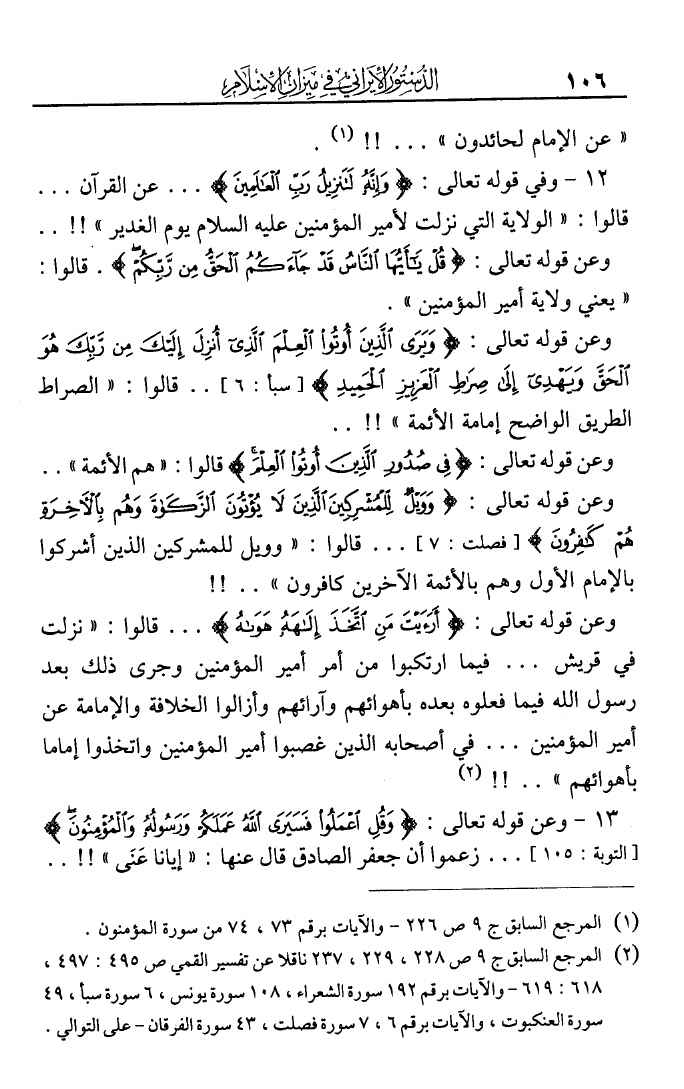 ١٠٦ الدستور الإيراني في ميزان الإسلام
« عن الإمام لحائدون » ... !! (١) .
١٢ - وفي قوله تعالى : ﴿ وَإِنَّهُ لَتَنزِيلُ رَبِّ الْعَالَمِينَ ﴾ ... عن القرآن ...
قالوا : « الولاية التي نزلت لأمير المؤمنين عليه السلام يوم الغدير » !! ..
وعن قوله تعالى : ﴿ قُلْ يَٰٓأَيُّهَا النَّاسُ قَدْ جَآءَكُمُ الْحَقُّ مِن رَّبِّكُمْ ﴾ . قالوا :
« يعني ولاية أمير المؤمنين » .
وعن قوله تعالى : ﴿ وَيَرَى ٱلَّذِينَ أُوتُوا۟ ٱلْعِلْمَ ٱلَّذِىٓ أُنزِلَ إِلَيْكَ مِن رَّبِّكَ هُوَ
ٱلْحَقَّ وَيَهْدِىٓ إِلَىٰ صِرَٰطِ ٱلْعَزِيزِ ٱلْحَمِيدِ ﴾ [ سبأ : ٦ ] .. قالوا : « الصراط
الطريق الواضح إمامة الأئمة » !! ..
وعن قوله تعالى : ﴿ فِى صُدُورِ ٱلَّذِينَ أُوتُوا۟ ٱلْعِلْمَ ﴾ قالوا : « هم الأئمة » ..
وعن قوله تعالى : ﴿ وَوَيْلٌ لِّلْمُشْرِكِينَ ٱلَّذِينَ لَا يُؤْتُونَ ٱلزَّكَوٰةَ وَهُم بِٱلْآخِرَةِ
هُمْ كَٰفِرُونَ ﴾ [ فصلت : ٧ ] ... قالوا : « وويل للمشركين الذين أشركوا
بالإمام الأول وهم بالأئمة الآخرين كافرون » .. !!
وعن قوله تعالى : ﴿ أَرَءَيْتَ مَنِ ٱتَّخَذَ إِلَٰهَهُۥ هَوَىٰهُ ﴾ ... قالوا : « نزلت
في قريش ... فيما ارتكبوا من أمر أمير المؤمنين وجرى ذلك بعد
رسول الله فيما فعلوه بعده بأهوائهم وآرائهم وأزالوا الخلافة والإمامة عن
أمير المؤمنين ... في أصحابه الذين غصبوا أمير المؤمنين واتخذوا إماما
بأهوائهم » .. !! (٢)
١٣ - وعن قوله تعالى : ﴿ وَقُلِ ٱعْمَلُوا۟ فَسَيَرَى ٱللَّهُ عَمَلَكُمْ وَرَسُولُهُۥ وَٱلْمُؤْمِنُونَ ﴾
[ التوبة : ١٠٥ ] ... زعموا أن جعفر الصادق قال عنها : « إيانا عَنَى » !! ..
(١) المرجع السابق ج ٩ ص ٢٢٦ - والآيات برقم ٧٣ ، ٧٤ من سورة المؤمنون .
(٢) المرجع السابق ج ٩ ص ٢٢٨ ، ٢٢٩ ، ٢٣٧ ناقلا عن تفسير القمي ص ٤٩٥ : ٤٩٧ ،
٦١٨ : ٦١٩ - والآيات برقم ١٩٢ سورة الشعراء ، ١٠٨ سورة يونس ، ٦ سورة سبأ ، ٤٩
سورة العنكبوت ، والآيات برقم ٦ ، ٧ سورة فصلت ، ٤٣ سورة الفرقان - على التوالي .